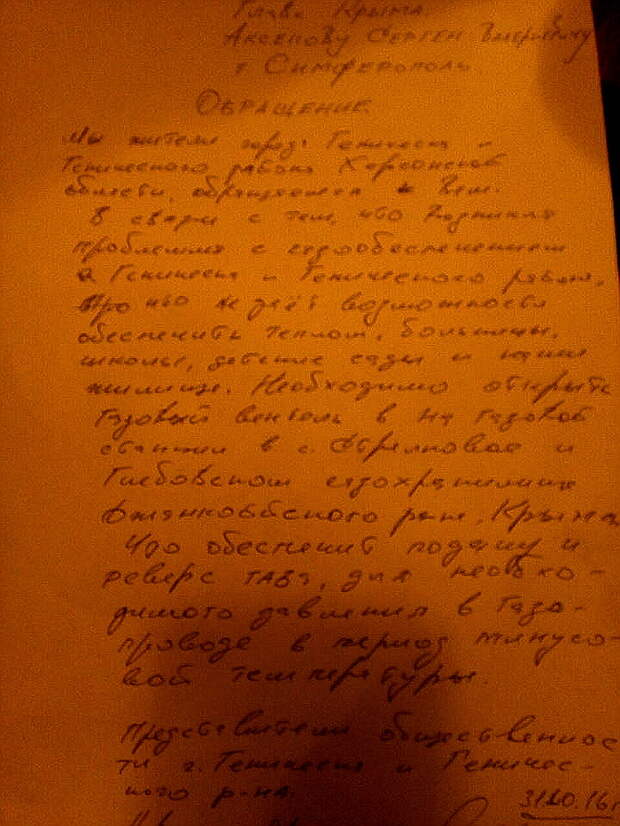 Глава Крыма.
Аксенову Сергею Валериевичу
г Симферополь
ОБРАЩЕНИЕ
Мы жители города Геническа и
Генического района Херсонской
области, обращаемся к Вам.
В связи с тем, что возникла
проблемма с газообеспечением
Геническа и Генического района,
что не даёт возможности
обеспечить теплом, больницы,
школы, детские сады и наши
жилища. Необходимо открыть
газовый вентель в на газовой
станции в с. Стрелковое и
Глебовском газохранилище
Джанкойского р-на, Крыма
Что обеспечит подачу и
реверс газа, для необхо-
димого давления в газо-
проводе в период минусо-
вой температуры.
Представители общественнос
ти г. Геническа и Геничес-
кого р-на.
31.10.16г